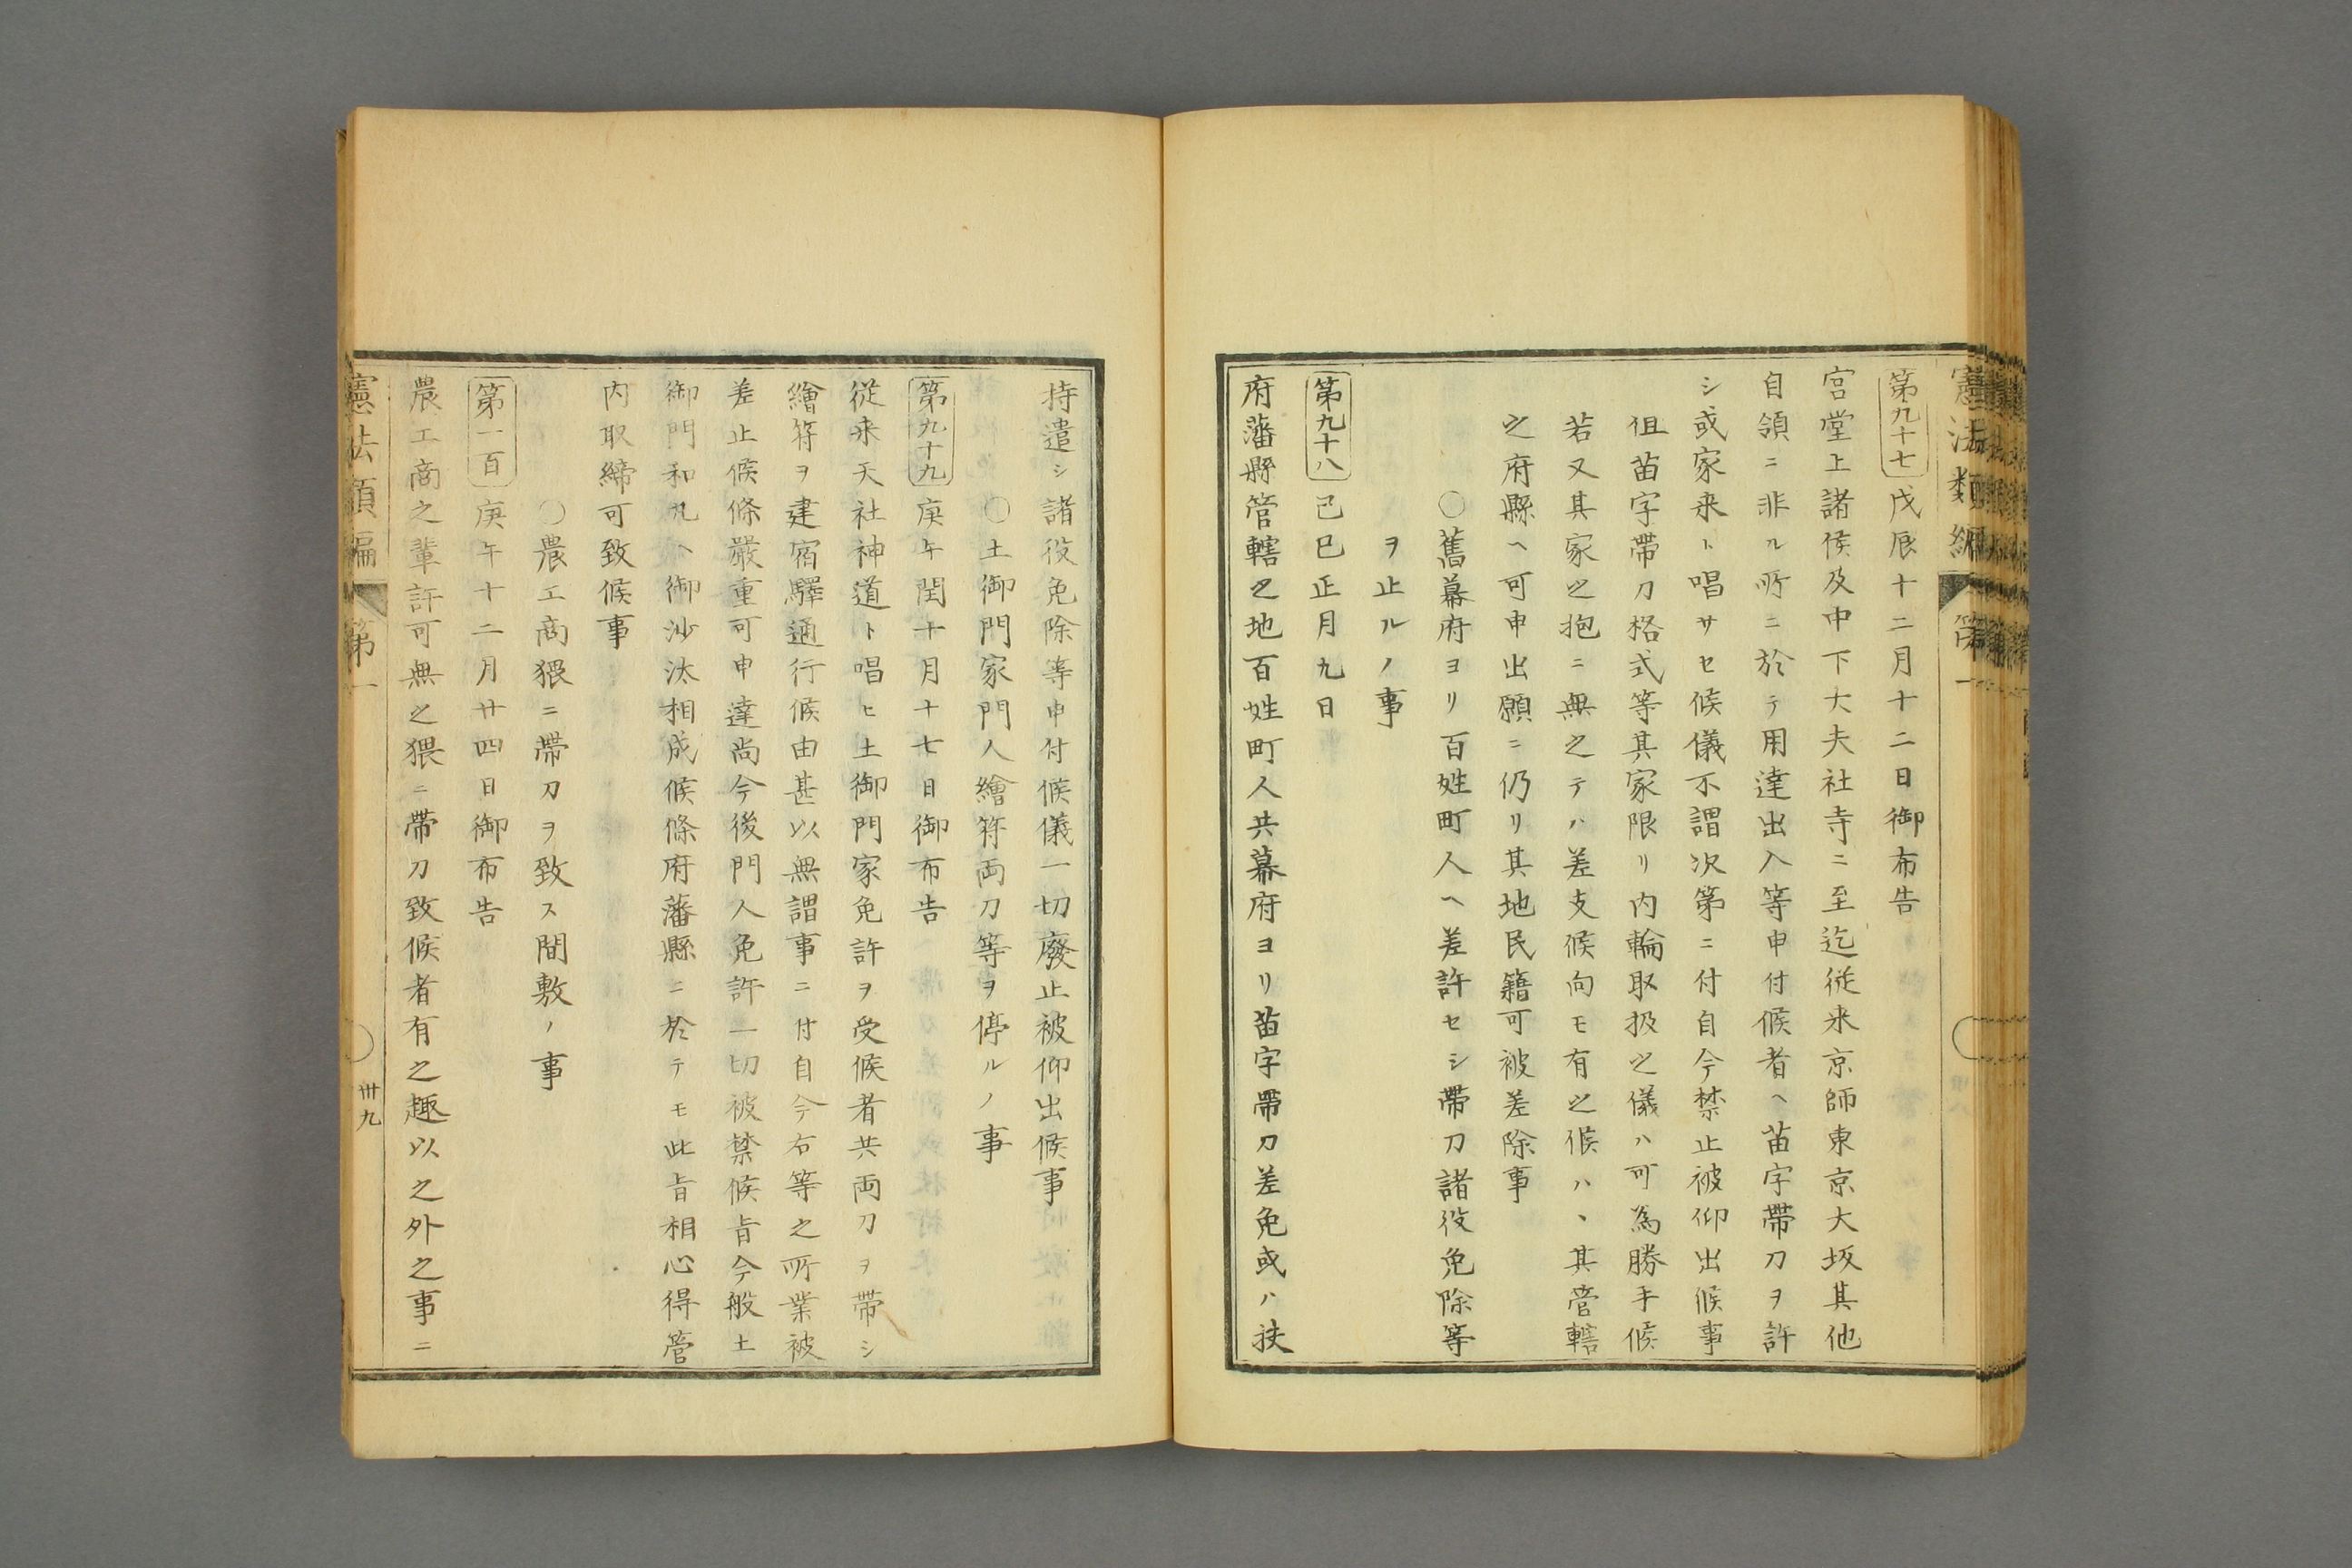 憲法類編 第一
第九十七 戊辰十二月十二日御布告
宮堂上諸侯及中下大夫社寺ニ至迄従来京師東京大坂其他
自領ニ非ル所ニ於テ用達出入等申付候者ヘ苗字帶刀ヲ許
シ或家来ト唱サセ候儀不謂次第ニ付自今禁止被仰出候事
但苗字帶刀格式等其家限リ内輪取扱之儀ハ可為勝手候
若又其家之抱ニ無之テハ差支候向モ有之候ハヽ其管轄
之府縣ヘ可申出願ニ仍リ其地民籍可被差除事
○舊幕府ヨリ百姓町人ヘ差許セシ帶刀諸役免除等
ヲ止ルノ事
第九十八 己巳正月九日
府藩縣管轄之地百姓町人共幕府ヨリ苗字帶刀差免或ハ扶
持遣シ諸役免除等申付候儀一切廢止被仰出候事
○土御門家門人繪符両刀等ヲ停ルノ事
第九十九 庚午閏十月十七日御布告
従来天社神道ト唱ヒ土御門家免許ヲ受候者共両刀ヲ帶シ
繪符ヲ建宿驛通行候由甚以無謂事ニ付自今右等之所業被
差止候條嚴重可申達尚今後門人免許一切被禁候旨今般土
御門和丸ヘ御沙汰相成候條府藩縣ニ於テモ此旨相心得管
内取締可致候事
○農工商猥ニ帶刀ヲ致ス間敷ノ事
第一百 庚午十二月廿四日御布告
農工商之輩許可無之猥ニ帶刀致候者有之趣以之外之事ニ
憲法類編 第一 卅九